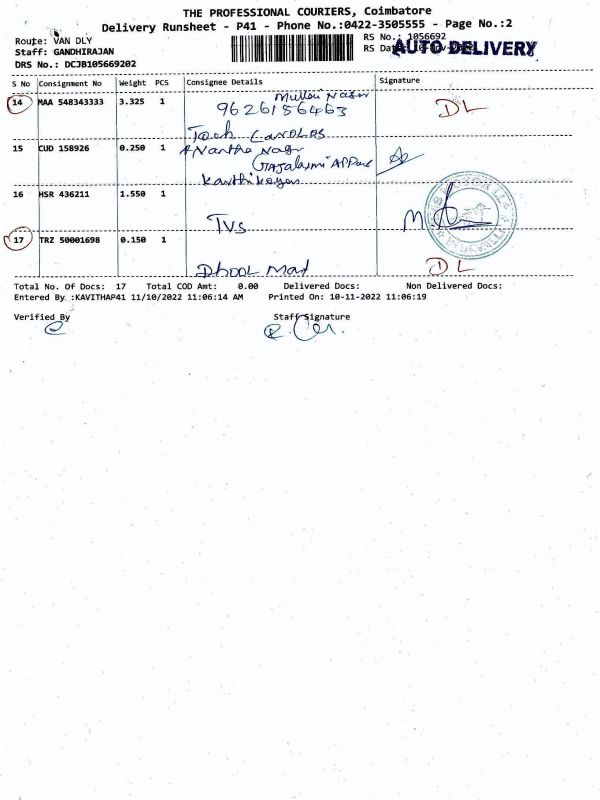 THE PROFESSIONAL COURIERS, Coimbatore
Delivery Runsheet - P41 - Phone No.:0422-3505555 - Page No.:2
Route: VAN DLY
RS No.: 1056692
Staff: GANDHIRAJAN
RS Date
AUTO DELIVERY
DRS No.: DCJB105669202
S No Consignment No Weight PCS Consignee Details Signature
14 MAA 548343333 3.325 1 9626156463 DL
15 CUD 158926 0.250 1
Karthikeyan
16 HSR 436211 1.550 1
TVS
17 TRZ 50001698 0.150 1 DL
Total No. Of Docs: 17 Total COD Amt: 0.00 Delivered Docs: Non Delivered Docs:
Entered By :KAVITHAP41 11/10/2022 11:06:14 AM Printed On: 10-11-2022 11:06:19
Verified By Staff Signature